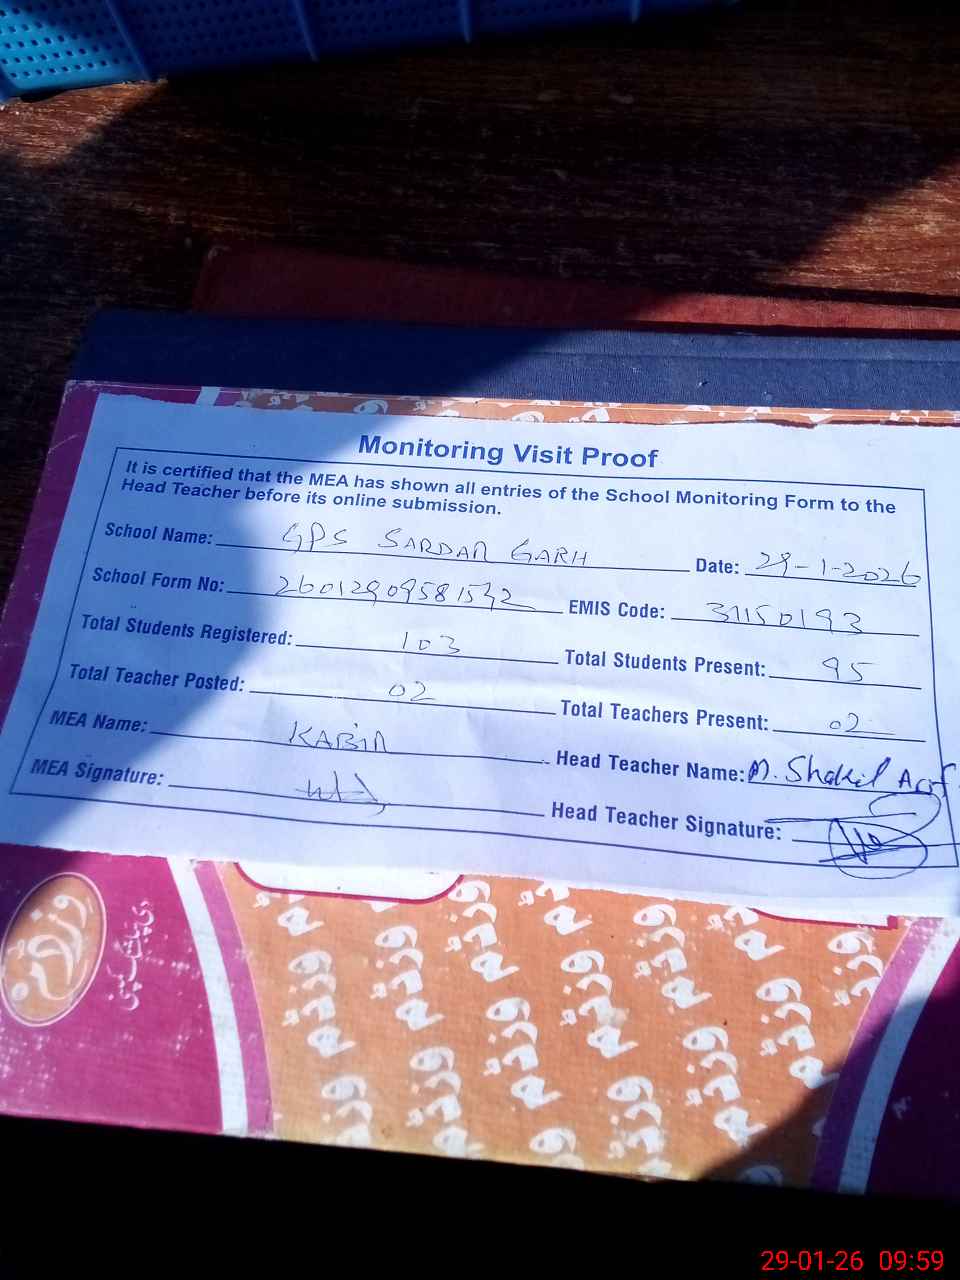 Monitoring Visit Proof
It is certified that the MEA has shown all entries of the School Monitoring Form to the
Head Teacher before its online submission.
School Name: GPS SARDAR GARH Date: 29-1-2026
School Form No: 26012909581542 EMIS Code: 31150193
Total Students Registered: 103 Total Students Present: 95
Total Teacher Posted: 02 Total Teachers Present: 02
MEA Name: KABIR Head Teacher Name: M. Shakil Arif
MEA Signature: Head Teacher Signature:
29-01-26 09:59